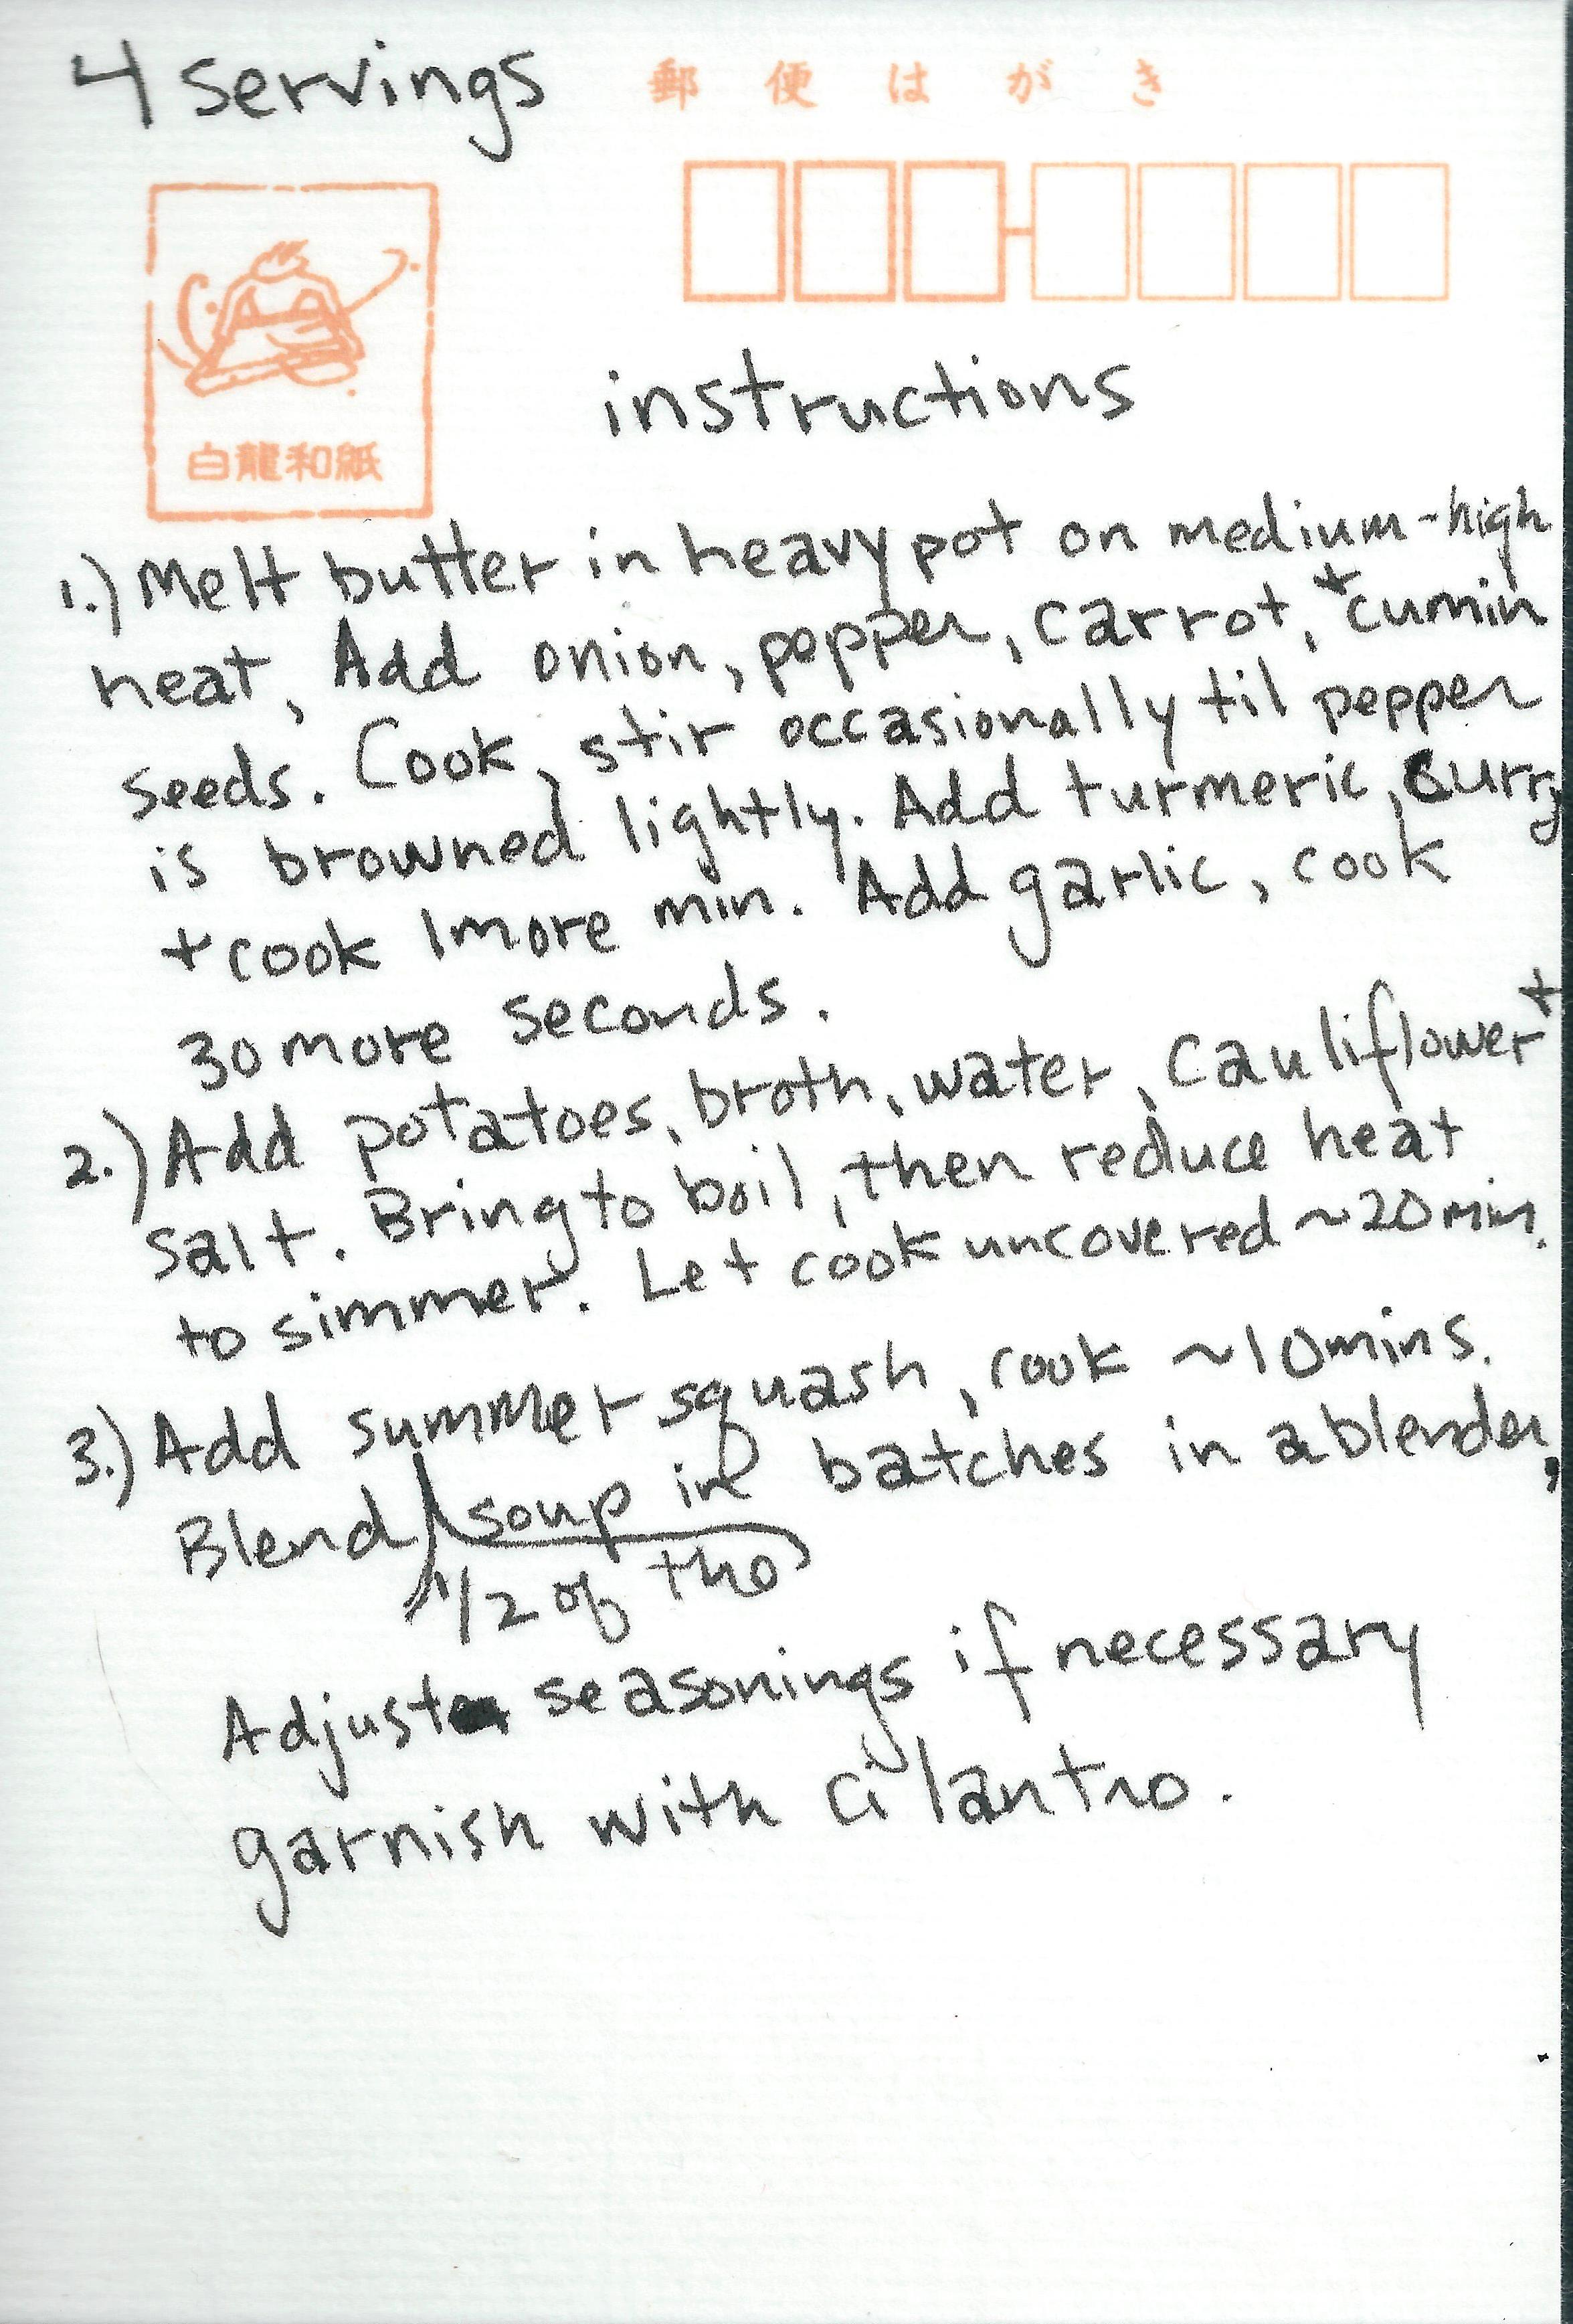 4 servings
郵便はがき
白龍和紙
instructions
1.) Melt butter in heavy pot on medium-high
heat, Add onion, pepper, carrot, + cumin
seeds. Cook, stir occasionally til pepper
is browned lightly. Add turmeric, curry
+ cook 1 more min. Add garlic, cook
30 more seconds.
2.) Add potatoes, broth, water, cauliflower +
salt. Bring to boil, then reduce heat
to simmer. Let cook uncovered ~20 min.
3.) Add summer squash, cook ~10 mins.
Blend soup in batches in a blender,
1/2 of the
Adjust seasonings if necessary
garnish with cilantro.